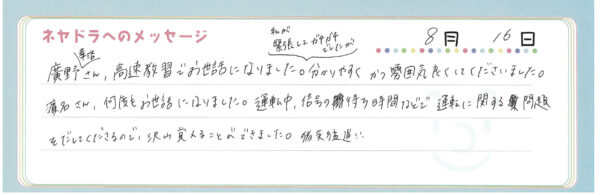 ネヤドラへのメッセージ
8月 16日
私が
緊張してガチガチ
でしたが
廣野さん,高速教習でお世話になりました。分かりやすく かつ雰囲気良くしてくださいました。
さん,何度もお世話になりました。運転中,信号の待ち時間などで運転に関する問題
をだしてくださるので,沢山覚えることができました。